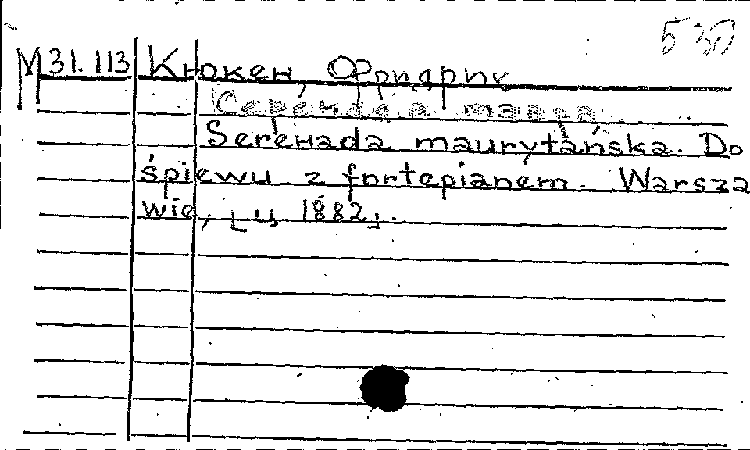 530
М 31.113 Кнокен, Фридрих
Serенada maurytańska. Do
śpiewu z fortepianem. Warsza
wie, [ц 1882].